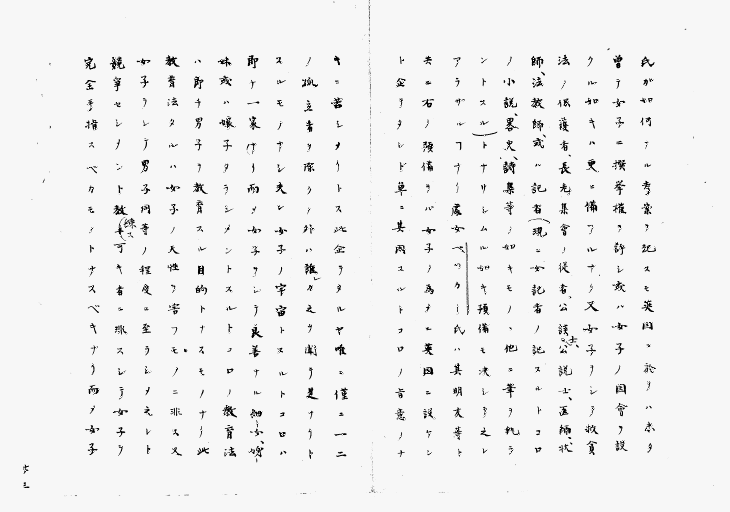 氏ガ如何ナル考案ヲ記スモ英国ニ於テハ未タ
曽テ女子ニ撰挙権ヲ許シ或ハ女子ノ国会ヲ設
クル如キハ更ニ備アルナク又女子ヲシテ救貧
法ノ保護者、長老、集会ノ従者、公証士、公説士、医師、状
師、法教師、或ハ記者(現ニ女記者ノ記スルトコロ
ノ小説、畧史、詩集等ノ如キモノ、他ニ筆ヲ執ラ
ントスル)トナサシムル如キ預備モ決シテ之レ
アラザルフナリ處女ベッカー氏ハ其明友等ト
共ニ右ノ預備ヲバ女子ノ為メニ英国ニ設ケン
ト企テタレド単ニ其因スルトコロノ旨意ノナ
キニ苦シメリトス此企ヲタルヤ唯ニ僅ニ一二
ノ孤立者ヲ除クノ外ハ誰レカ之ヲ聞ヲ是ナリト
スルモノナシ夫レ女子ノ宇宙トスルトコロハ
即ケ一家ナリ而メ女子ヲシテ良善ナル細女、婢
妹或ハ嬢子タラシメントスルトコロノ教育法
ハ即チ男子ヲ教育スル目的トナスモノナリ此
教育法タルハ女子ノ天性ヲ害フモノニ非ス又
女子ヲシテ男子同等ノ程度ニ至ラシメ之レト
競争セシメント教(練ス)可キ者ニ非スシテ女子ヲ
完全ヲ指スベカモノトナスベキナリ而メ女子